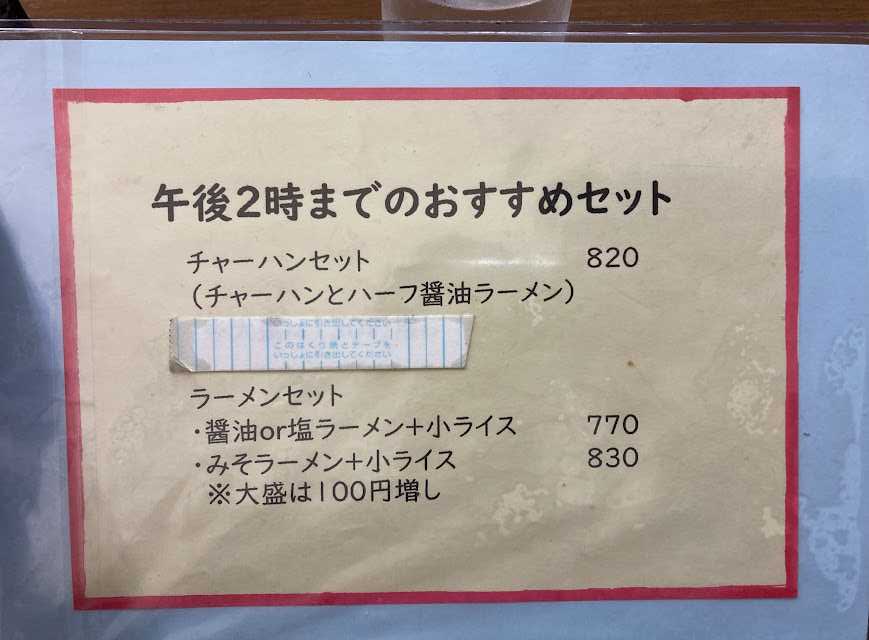 午後2時までのおすすめセット
チャーハンセット 820
(チャーハンとハーフ醤油ラーメン)
いっしょに引き出してください
このはくり紙とテープを
いっしょに引き出してください
ラーメンセット
・醤油or塩ラーメン+小ライス 770
・みそラーメン+小ライス 830
※大盛は100円増し